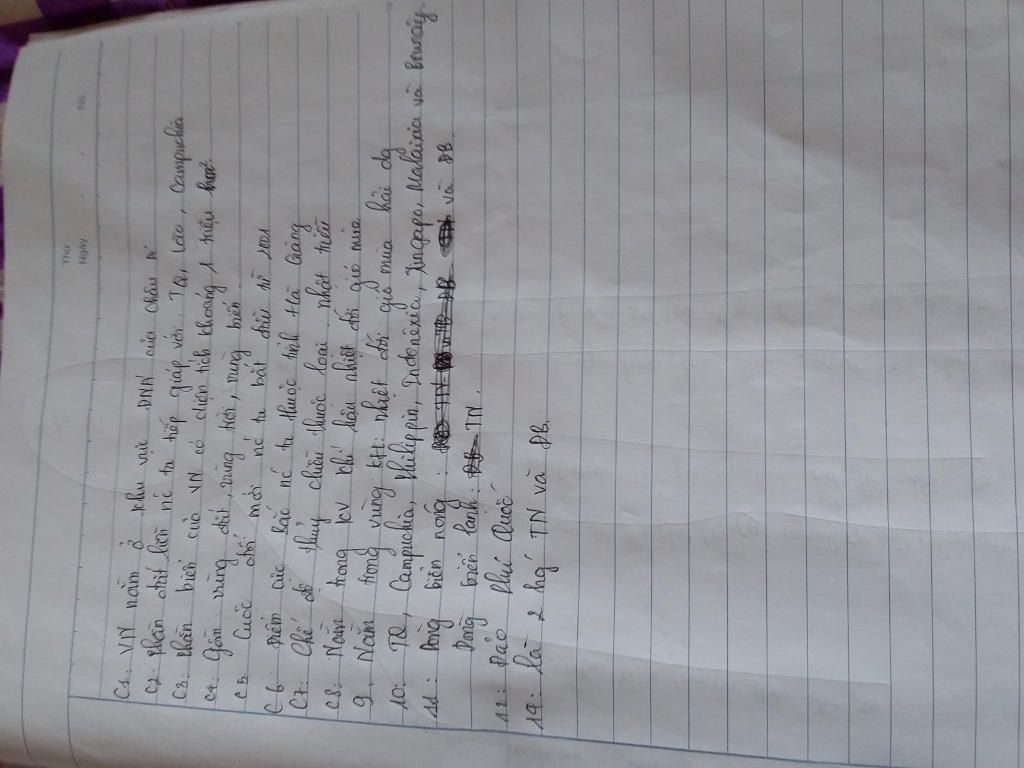 Thứ
Ngày
No.
C1: VN nằm ở khu vực ĐNA của châu Á
C2: Phần đất liền nc ta tiếp giáp với: TQ, Lào, Campuchia
C3: Phần biển của VN có diện tích khoảng 1 triệu km²
C4: Gồm: vùng đất, vùng trời, vùng biển.
C5: Cuộc đổi mới nc ta bắt đầu từ
C6: Điểm cực bắc nc ta thuộc tỉnh Hà Giang
C7: Chế độ thuỷ chiều thuộc loại: nhật triều
C8: Nằm trong kv khí hậu nhiệt đới gió mùa
9: Nằm trong vùng KH: nhiệt đới gió mùa hải dg
10: TQ, Campuchia, Philippin, Indonêxia, Xingapo, Malaixia và Brunây.
11: Dòng biển nóng: và ĐB.
Dòng biển lạnh: TN.
12: Đảo Phú Quốc
14: là 2 hg' TN và ĐB.